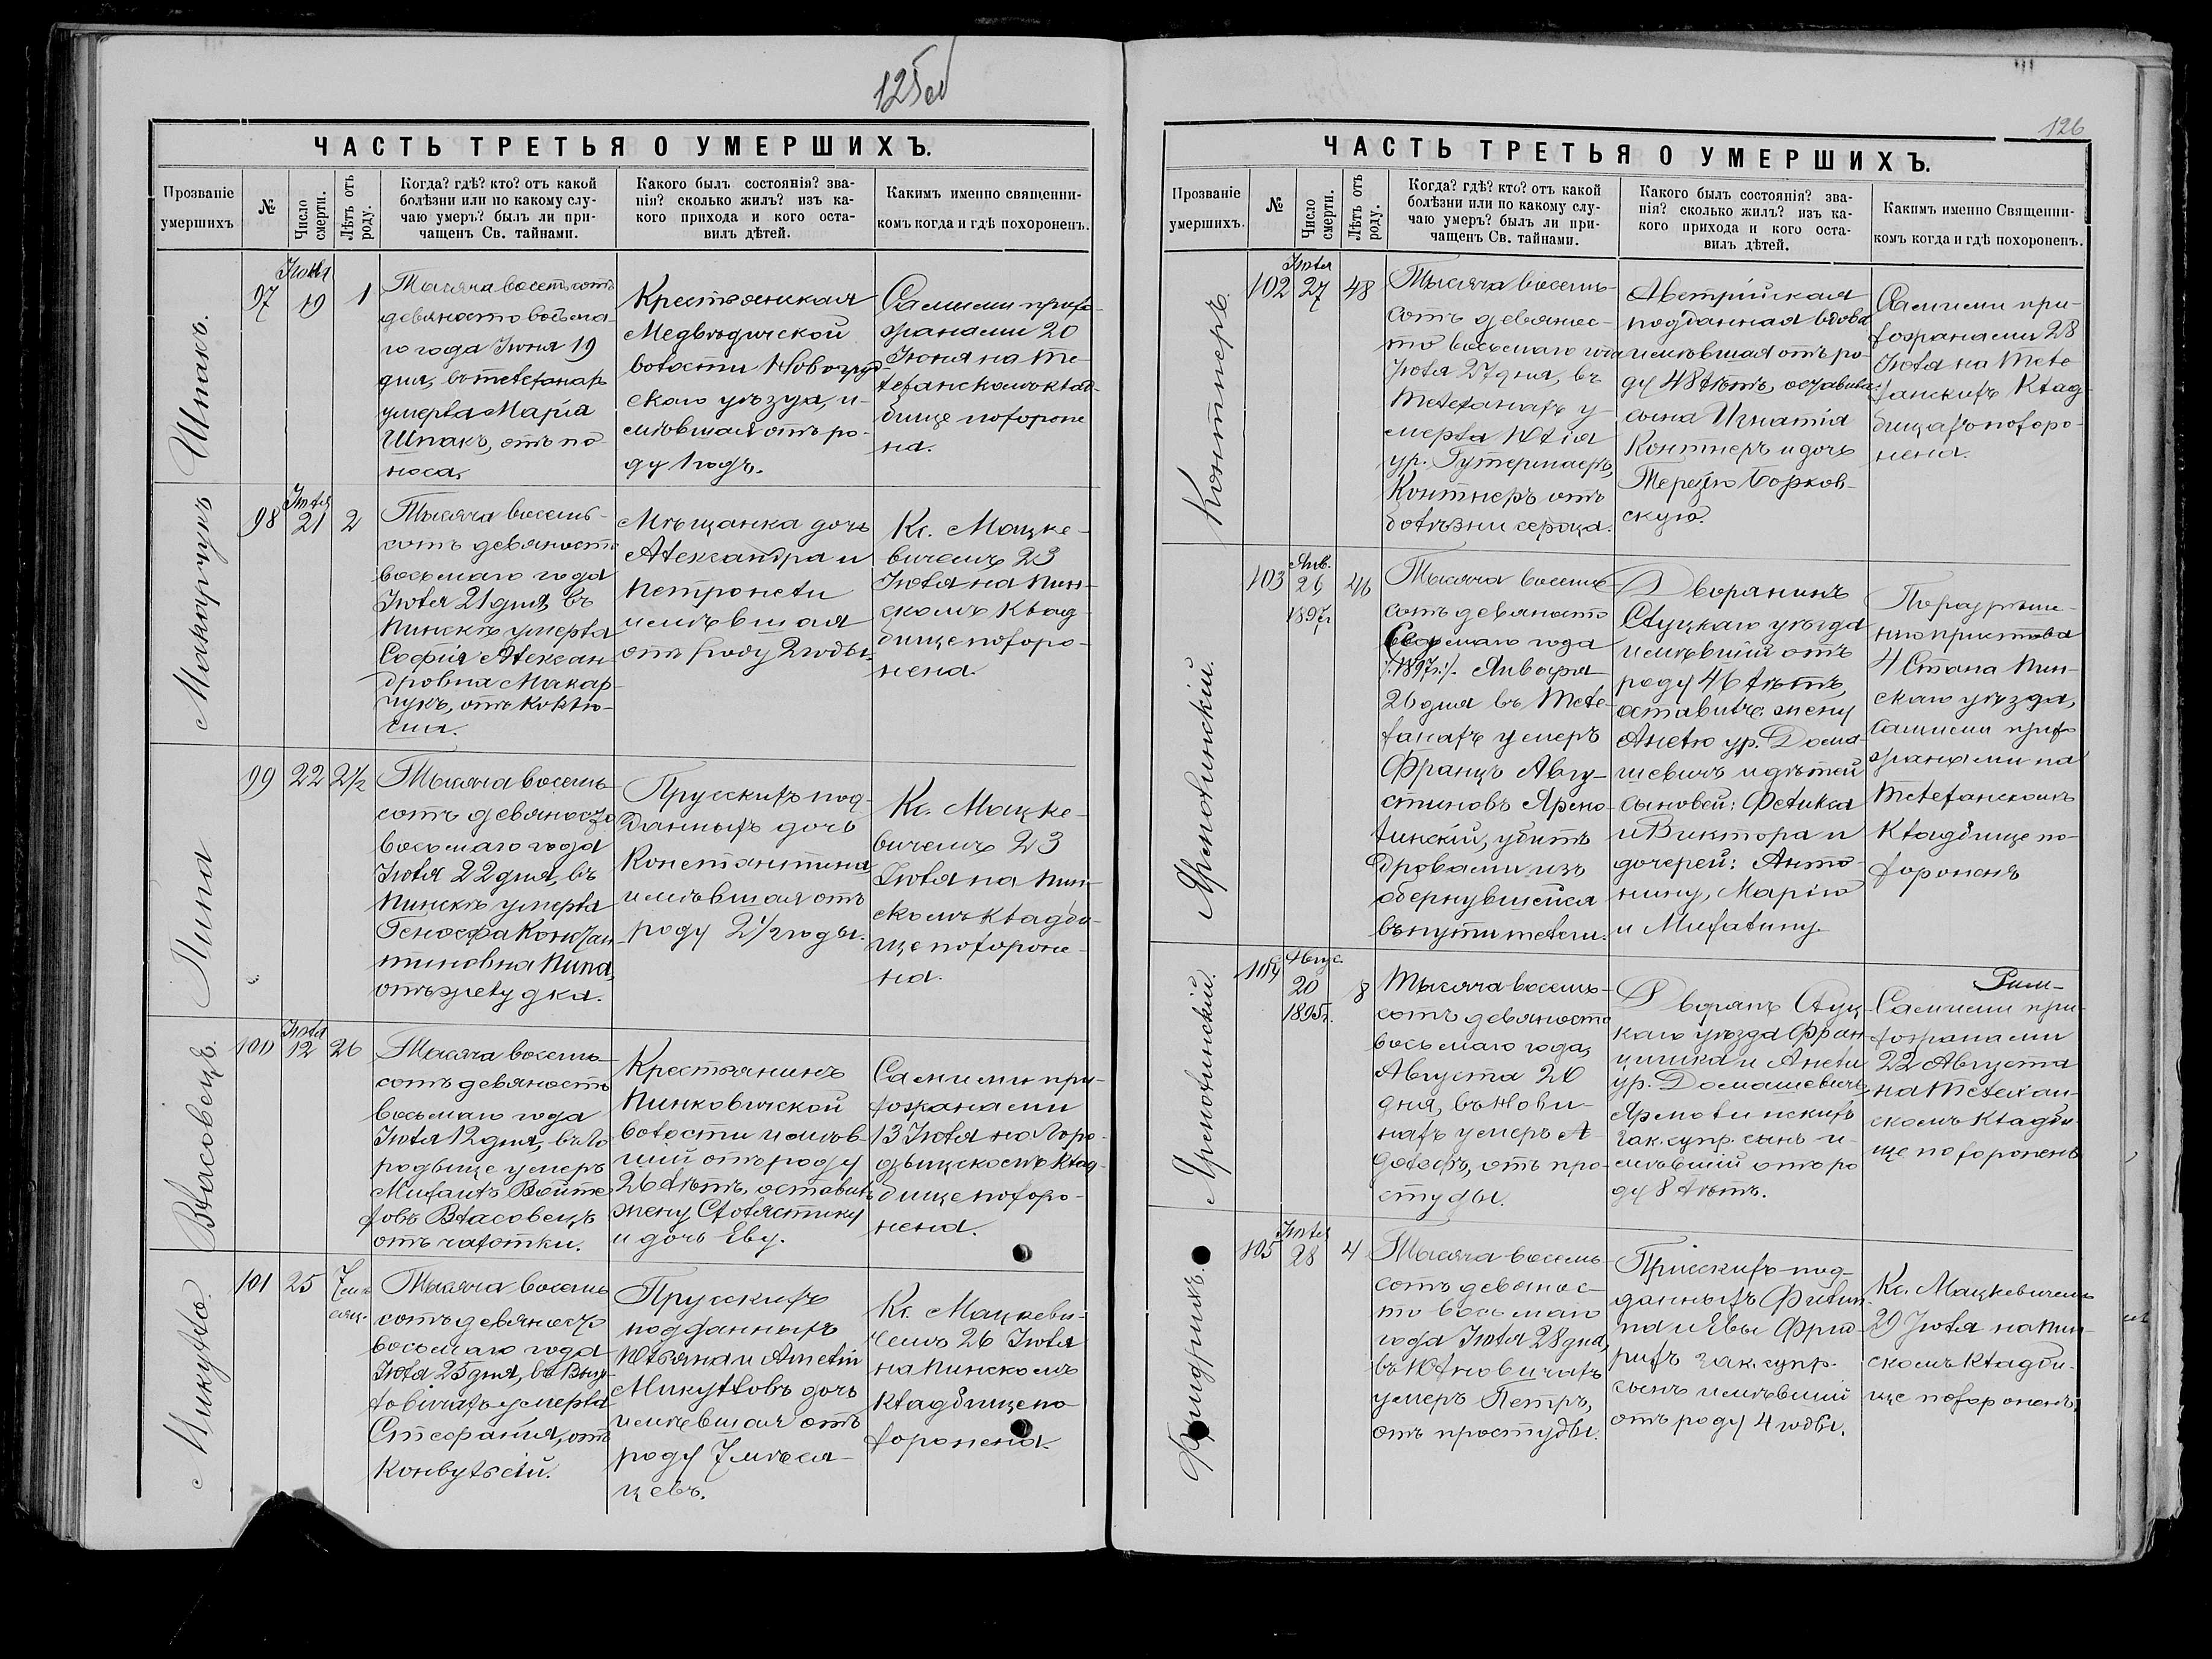 125об
ЧАСТЬ ТРЕТЬЯ О УМЕРШИХЪ.
Прозваніе умершихъ
№
Число смерти.
Лѣтъ отъ роду.
Когда? гдѣ? кто? отъ какой
болѣзни или по какому слу-
чаю умеръ? былъ ли при-
чащенъ Св. тайнами.
Какого былъ состоянія? зва-
нія? сколько жилъ? изъ ка-
кого прихода и кого оста-
вилъ дѣтей.
Какимъ именно священни-
комъ когда и гдѣ похороненъ.
Шпакъ.
97
Іюня
19
1
Тысяча восемьсотъ
девяносто восьма-
го года Іюня 19
дня, въ Телеханахъ
умерла Марія
Шпакъ, отъ по-
носа.
Крестьянская
Медвѣдичской
волости Новогруд-
скаго уѣзда, и-
мѣвшая отъ ро-
ду 1 годъ.
Самими прихо-
жанами 20
Іюня на Те-
леханскомъ клад-
бище похороне
на.
Макарчукъ
98
Іюля
21
2
Тысяча восемь-
сотъ девяносто
восьмаго года
Іюля 21 дня, въ
Пинскѣ умерла
Софія Алексан-
дровна Макар-
чукъ, отъ коклю-
ша.
Мѣщанка дочь
Александра и
Петронели
имѣвшая
отъ роду 2 годы.
Кс. Мацке-
вичемъ 23
Іюля на Пин-
скомъ клад
бище похоро-
нена.
Пипа
99
22
2½
Тысяча восемь-
сотъ девяносто
восьмаго года
Іюля 22 дня, въ
Пинскѣ умерла
Генофа Констан-
тиновна Пипа,
отъ желудка.
Прусскихъ под-
данныхъ дочь
Константина
имѣвшая отъ
роду 2½ годы.
Кс. Мацке-
вичемъ 23
Іюля на Пин-
скомъ кладби-
ще похороне-
на.
Власовецъ.
100
Іюля
12
26
Тысяча восемь-
сотъ девяносто
восьмаго года
Іюля 12 дня, въ Го
родыще умеръ
Михаилъ Войте
ховъ Власовецъ
отъ чахотки.
Крестьянинъ
Пинковичской
волости имѣв-
шій отъ роду
26 лѣтъ, оставилъ
жену Схоластику
и дочь Еву.
Самими при-
хожанами
13 Іюля на Горо-
дыщскомъ клад-
бище похоро-
нена.
Микулло.
101
25
7 мѣ-
сяц.
Тысяча восемь
сотъ девяносто
восьмаго года
Іюля 25 дня, въ
умерла
Стефанія, отъ
конвульсій.
Прусскихъ
подданныхъ
Юльяна и Амеліи
Микулловъ дочь
имѣвшая отъ
роду 7 мѣся-
цевъ.
Кс. Мацкеви-
чемъ 26 Іюля
на Пинскомъ
кладбище по-
хоронена.
126
ЧАСТЬ ТРЕТЬЯ О УМЕРШИХЪ.
Прозваніе умершихъ.
№
Число смерти.
Лѣтъ отъ роду.
Когда? гдѣ? кто? отъ какой
болѣзни или по какому слу-
чаю умеръ? былъ ли при-
чащенъ Св. тайнами.
Какого былъ состоянія? зва-
нія? сколько жилъ? изъ ка-
кого прихода и кого оста-
вилъ дѣтей.
Какимъ именно Священни-
комъ когда и гдѣ похороненъ.
Контнеръ.
102
Іюля
27
48
Тысяча восемь-
сотъ девянос-
то восьмаго года
Іюля 27 дня, въ
Телеханахъ у-
мерла Юлія
ур. Гутермаеръ,
Контнеръ отъ
болѣзни сердца.
Австрійская
подданная вдова
имѣвшая отъ ро-
ду 48 лѣтъ, оставила:
сына Игнатія
Контнеръ и дочь
Терезію Борков-
скую.
Самими при-
хожанами 28
Іюля на Теле
ханскихъ клад
бищахъ похоро-
нена.
Ярмолинскій.
103
Янв.
26
1897г.
46
Тысяча восемь-
сотъ девяносто
Седьмаго года
/:1897г.:/. Января
26 дня въ Теле-
ханахъ умеръ
Францъ Авгу-
стиновъ Ярмо-
линскій, убитъ
дровами изъ
обернувшейся
въ пути телеги.
Дворянинъ
Слуцкаго уѣзда
имѣвшій отъ
роду 46 лѣтъ,
оставилъ: жену
Анелю ур. Дома-
шевичъ и дѣтей
сыновей: Феликса
и Виктора и
дочерей: Анто-
нину, Марію
и Михалину.
По разрѣше-
нію пристава
4 Стана Пин-
скаго уѣзда,
самими прихо
жанами на
Телеханскомъ
кладбище по-
хороненъ
Ярмолинскій.
104
Авгус.
20
1895г.
8
Тысяча восемь-
сотъ девяносто
восьмаго года,
Августа 20
дня, въ Нови-
нахъ умеръ А-
дольфъ, отъ про-
студы.
Дворянъ Слуц-
каго уѣзда Фран
цишка и Анели
ур. Домашевичъ
Ярмолинскихъ
зак. супр. сынъ и-
мѣвшій отъ ро
ду 8 лѣтъ.
Самими при-
хожанами
22 Августа
на Телехан-
скомъ кладби-
ще похороненъ
Фридрихъ.
105
Іюля
28
4
Тысяча восемь-
сотъ девянос-
то восьмаго
года Іюля 28 дня,
въ
умеръ Петръ,
отъ простуды.
Прусскихъ под-
данныхъ Филип-
па и Евы Фрид-
рихъ зак. супр.
сынъ имѣвшій
отъ роду 4 годы.
Кс. Мацкевичемъ
29 Іюля на Пин-
скомъ кладби-
ще похороненъ.